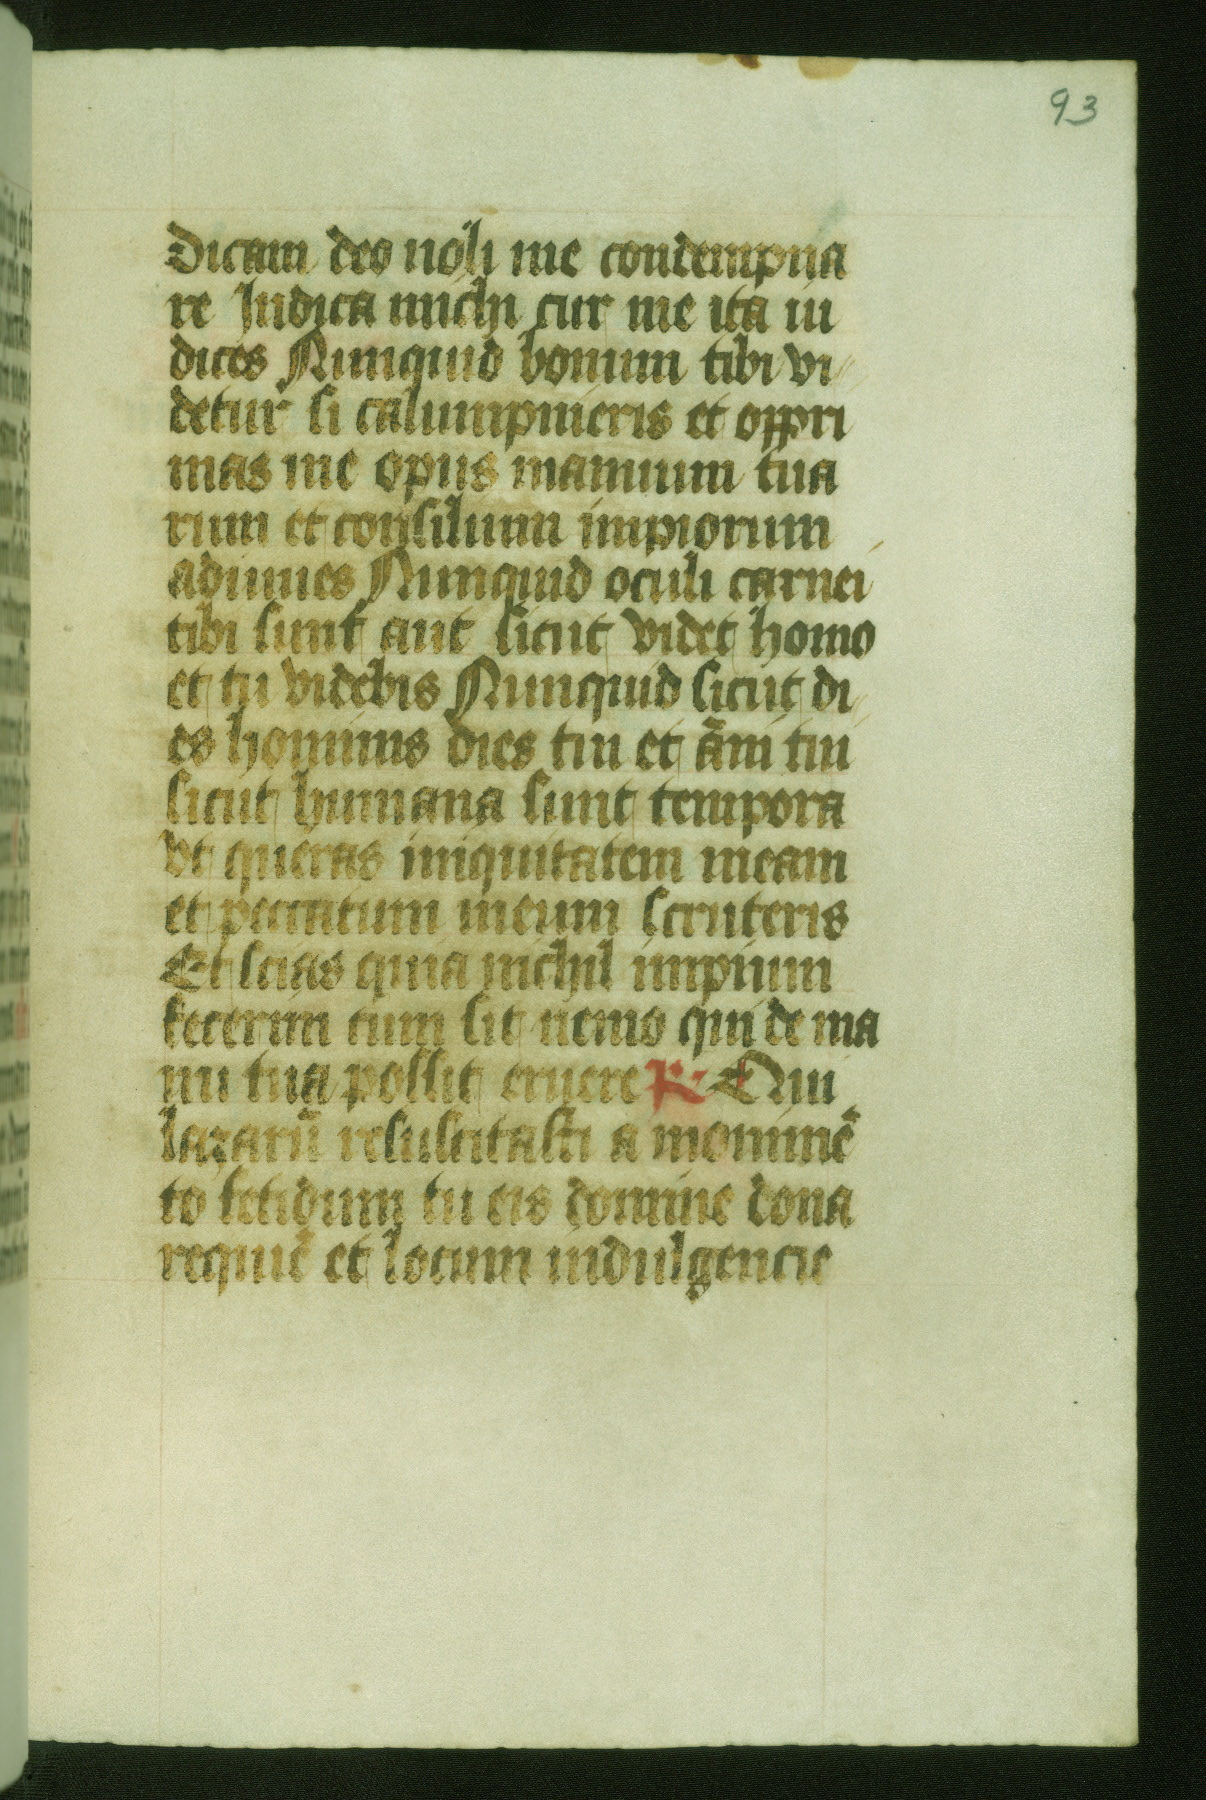 93
Dicam deo noli me condempna
re Iudica michi cur me ita iu
dices Nunquid bonum tibi vi
detur si calumpnieris et oppri
mas me opus manuum tua
rum et consilium impiorum
adiuues Nunquid oculi carnei
tibi sunt aut sicut videt homo
et tu videbis Nunquid sicut di
es hominis dies tui et āni tui
sicut humana sunt tempora
Vt queras iniquitatem meam
et peccatum meum scruteris
Et scias quia nichil impium
fecerim cum sit nemo qui de ma
nu tua possit eruere R Qui
lazarū resuscitasti a monumē
to fetidum tu eis domine dona
requiē et locum indulgencie